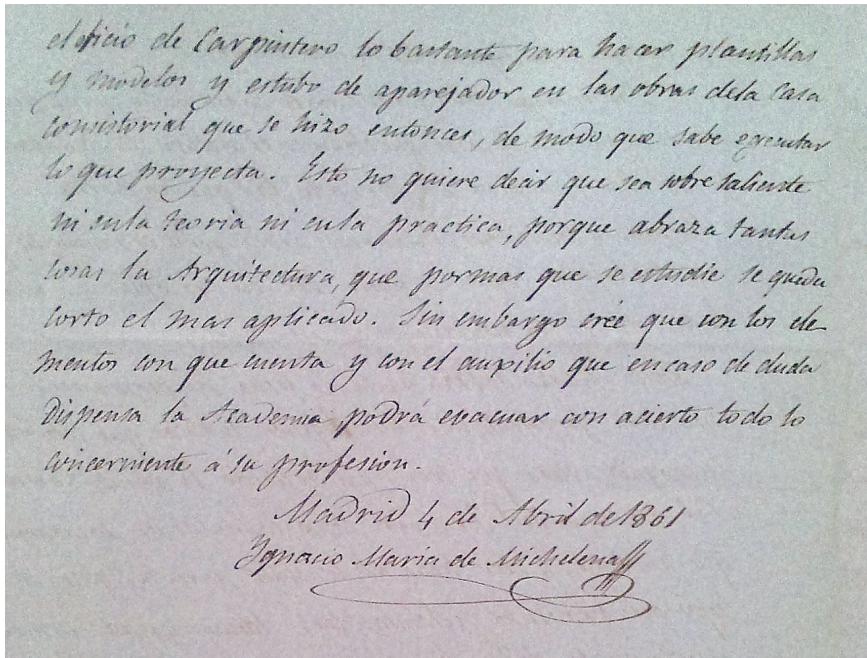 el oficio de Carpintero lo bastante para hacer plantillas
y modelos y estubo de aparejador en las obras dela Casa
Consistorial que se hizo entonces, de modo que sabe egecutar
lo que proyecta. Esto no quiere decir que sea sobre saliente
ni enla teoria ni enla practica, porque abraza tantas
cosas la Arquitectura, que pormas que se estudie se queda
corto el mas aplicado. Sin embargo crée que con los ele
mentos con que cuenta y con el auxilio que encaso de duda
dispensa la Academia podrá evacuar con acierto todo lo
concerniente á su profesion.
Madrid 4 de Abril de 1861
Ygnacio María de Michelena